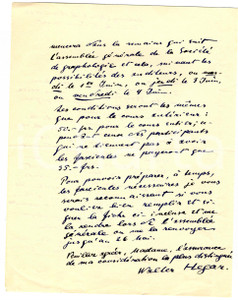 mencera dans la semaine qui suit
l'assemblée générale de la Société
de graphologie et cela, suivant les
possibilités des auditeurs, ou mar-
di le 1er Juin, ou jeudi le 3 Juin,
ou vendredi le 4 Juin.
Les conditions seront les mêmes
que pour le cours entier:
50.- frs pour le cours entier,
ceux des participants
qui ne tiennent pas à avoir
les fascicules ne payeront que
35.- frs.
Pour pouvoir préparer, à temps,
les fascicules nécessaires je vous
serais reconnaissant si vous
vouliez bien remplir et si-
gner la fiche ci-incluse et me
la rendre lors de l'assemblée
générale ou me la renvoyer
jusqu'au 26 Mai.
Veuillez agréer, Madame, l'assurance
de ma considération la plus distinguée
Walter Hegar.